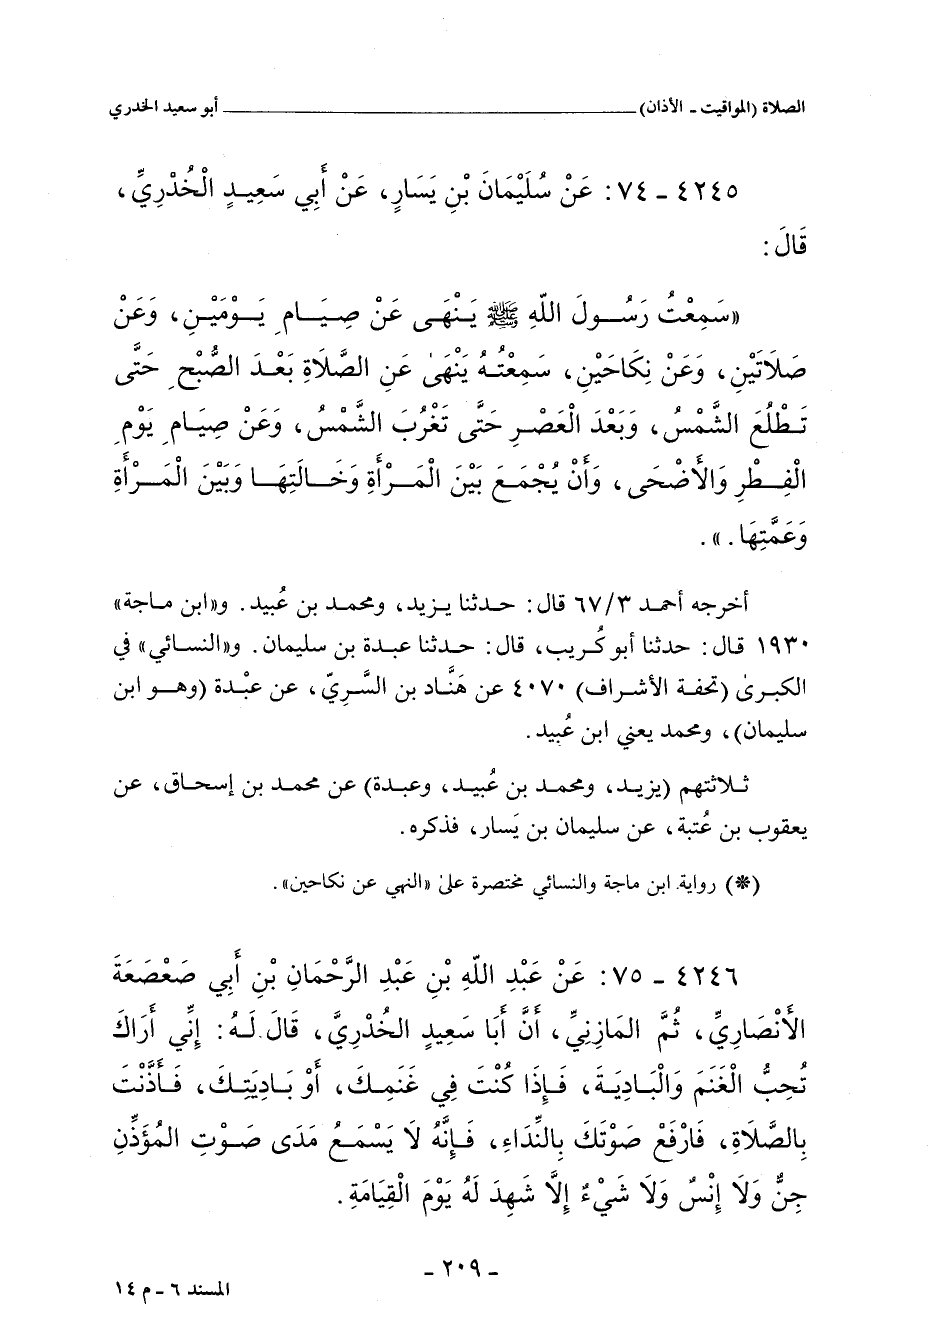 الصلاة (المواقيت - الأذان) أبو سعيد الخدري
٤٢٤٥ - ٧٤: عَنْ سُلَيْمَانَ بْنِ يَسَارٍ، عَنْ أَبِي سَعِيدٍ الْخُدْرِيِّ،
قَالَ:
«سَمِعْتُ رَسُولَ اللّهِ ﷺ يَنْهَى عَنْ صِيَامِ يَوْمَيْنِ، وَعَنْ
صَلَاتَيْنِ، وَعَنْ نِكَاحَيْنِ، سَمِعْتُهُ يَنْهَىٰ عَنِ الصَّلَاةِ بَعْدَ الصُّبْحِ حَتَّى
تَطْلُعَ الشَّمْسُ، وَبَعْدَ الْعَصْرِ حَتَّى تَغْرُبَ الشَّمْسُ، وَعَنْ صِيَامِ يَوْمِ
الْفِطْرِ وَالْأَضْحَى، وَأَنْ يُجْمَعَ بَيْنَ الْمَرْأَةِ وَخَالَتِهَا وَبَيْنَ الْمَرْأَةِ
وَعَمَّتِهَا.».
أخرجه أحمد ٦٧/٣ قال: حدثنا يزيد، ومحمد بن عُبيد. و«ابن ماجة»
١٩٣٠ قال: حدثنا أبو كُريب، قال: حدثنا عبدة بن سليمان. و«النسائي» في
الكبرىٰ (تحفة الأشراف) ٤٠٧٠ عن هَنَّاد بن السَّرِيّ، عن عبْدة (وهو ابن
سليمان)، ومحمد يعني ابن عُبيد.
ثلاثتهم (يزيد، ومحمد بن عُبيد، وعبدة) عن محمد بن إسحاق، عن
يعقوب بن عُتبة، عن سليمان بن يَسار، فذكره.
(*) رواية ابن ماجة والنسائي مختصرة علىٰ «النهي عن نكاحين».
٤٢٤٦ - ٧٥: عَنْ عَبْدِ اللهِ بْنِ عَبْدِ الرَّحْمَانِ بْنِ أَبِي صَعْصَعَةَ
الْأَنْصَارِيِّ، ثُمَّ المَازِنِيِّ، أَنَّ أَبَا سَعِيدٍ الخُدْرِيَّ، قَالَ لَهُ: إِنِّي أَرَاكَ
تُحِبُّ الْغَنَمَ وَالْبَادِيَةَ، فَإِذَا كُنْتَ فِي غَنَمِكَ، أَوْ بَادِيَتِكَ، فَأَذَّنْتَ
بِالصَّلَاةِ، فَارْفَعْ صَوْتَكَ بِالنِّدَاءِ، فَإِنَّهُ لَا يَسْمَعُ مَدَى صَوْتِ المُؤَذِّنِ
جِنٌّ وَلَا إِنْسٌ وَلَا شَيْءٌ إِلَّا شَهِدَ لَهُ يَوْمَ الْقِيَامَةِ.
- ٢٠٩ -
المسند ٦ - م ١٤